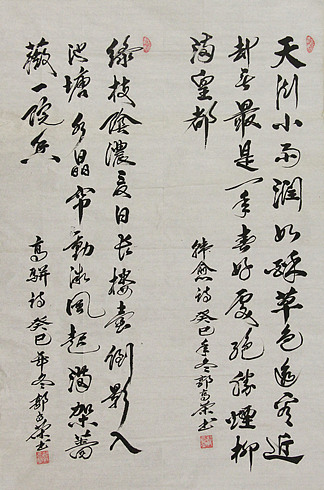 天街小雨润如酥草色遥看近
却无最是一年春好处绝胜烟柳
满皇都
韩愈诗癸巳年冬郝书
绿枝阴浓夏日长楼台倒影入
池塘水晶帘动微风起满架蔷
薇一院香
高骈诗癸巳年冬郝书